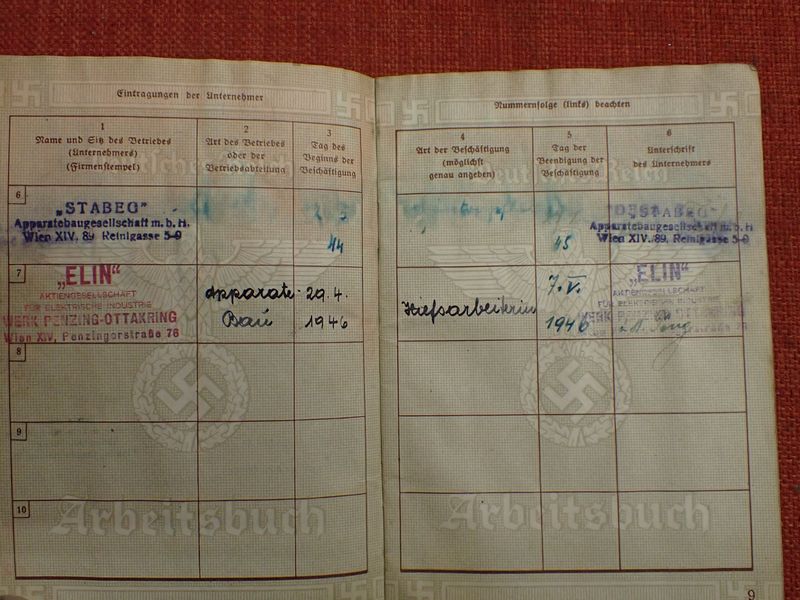 Eintragungen der Unternehmer
1
Name und Sitz des Betriebes
(Unternehmers)
(Firmenstempel)
2
Art des Betriebes
oder der
Betriebsabteilung
3
Tag des
Beginns der
Beschäftigung
6
„STABEG“
Apparatebaugesellschaft m. b. H.
Wien XIV, 89, Reinlgasse 5-9
44
7
„ELIN“
AKTIENGESELLSCHAFT
FÜR ELEKTRISCHE INDUSTRIE
WERK PENZING-OTTAKRING
Wien XIV, Penzingerstraße 76
Apparate-
Bau
29.4.
1946
8
9
10
Arbeitsbuch
Nummernfolge (links) beachten
4
Art der Beschäftigung
(möglichst
genau angeben)
5
Tag der
Beendigung der
Beschäftigung
6
Unterschrift
des Unternehmers
Deutsches Reich
45
STABEG“
Apparatebaugesellschaft m. b. H.
Wien XIV./89, Reinlgasse 5-9
Hilfsarbeiterin
7.V.
1946
„ELIN“
AKTIENGESELLSCHAFT
FÜR ELEKTRISCHE INDUSTRIE
WERK PENZING-OTTAKRING
Arbeitsbuch
9